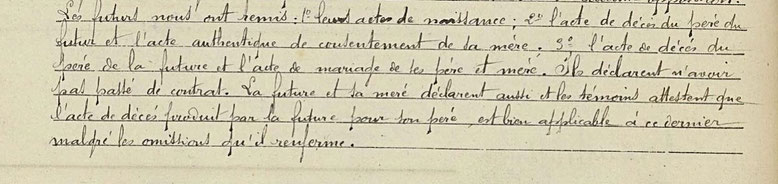 Les futurs nous ont remis : 1º leurs actes de naissance ; 2º l'acte de décès du père du
futur et l'acte authentique de consentement de sa mère. 3º l'acte de décès du
père de la future et l'acte de mariage de ses père et mère. Ils déclarent n'avoir
pas passé de contrat. La future et sa mère déclarent aussi et les témoins attestent que
l'acte de décès produit par la future pour son père, est bien applicable à ce dernier
malgré les omissions qu'il renferme.